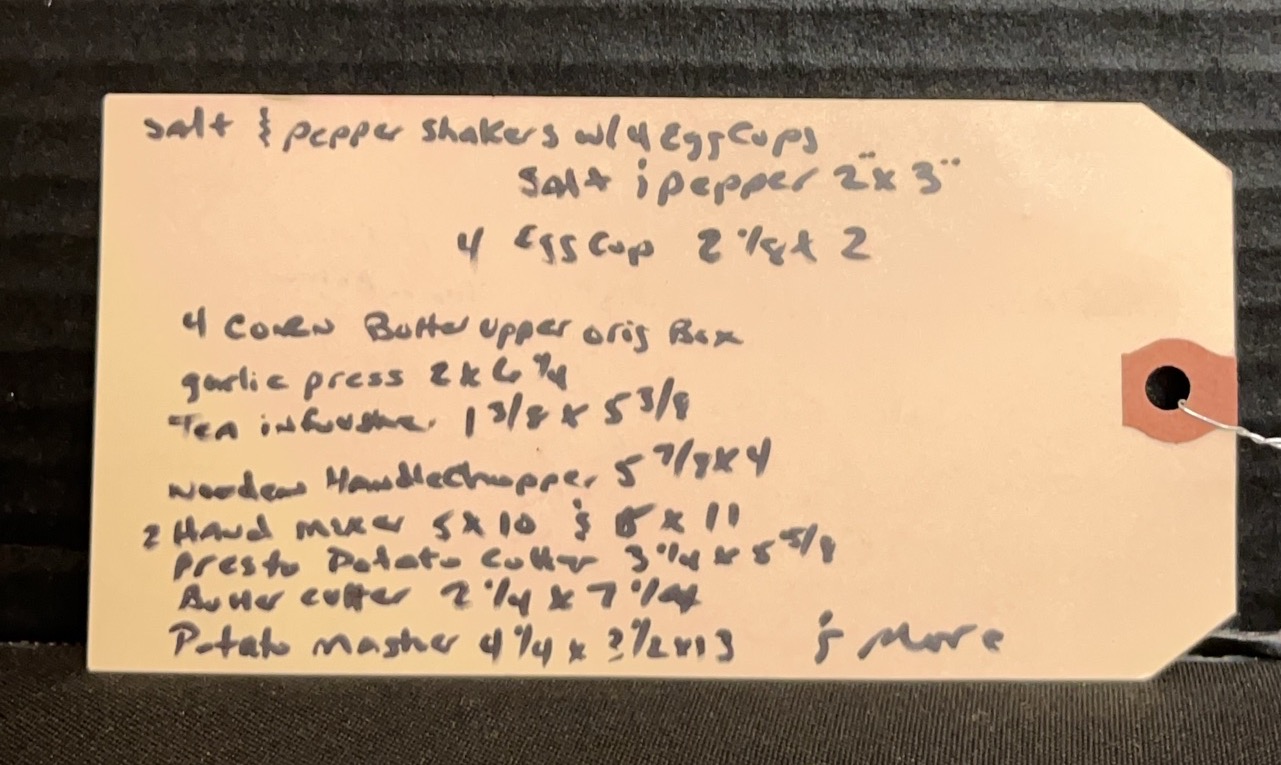 Salt & pepper shakers w/ 4 Egg Cups
Salt & pepper 2" x 3"
4 Egg Cup 2 1/8 x 2
4 Coren Butter upper orig Box
garlic press 2 x 6 1/4
Tea infuser 1 3/8 x 5 3/8
Wooden Handle Chopper 5 7/8 x 4
2 Hand mixer 5 x 10 & 5 x 11
Presto Potato Cutter 3 1/4 x 5 5/8
Butter cutter 2 1/4 x 7 1/4
Potato masher 4 1/4 x 3 1/2 x 13 & More